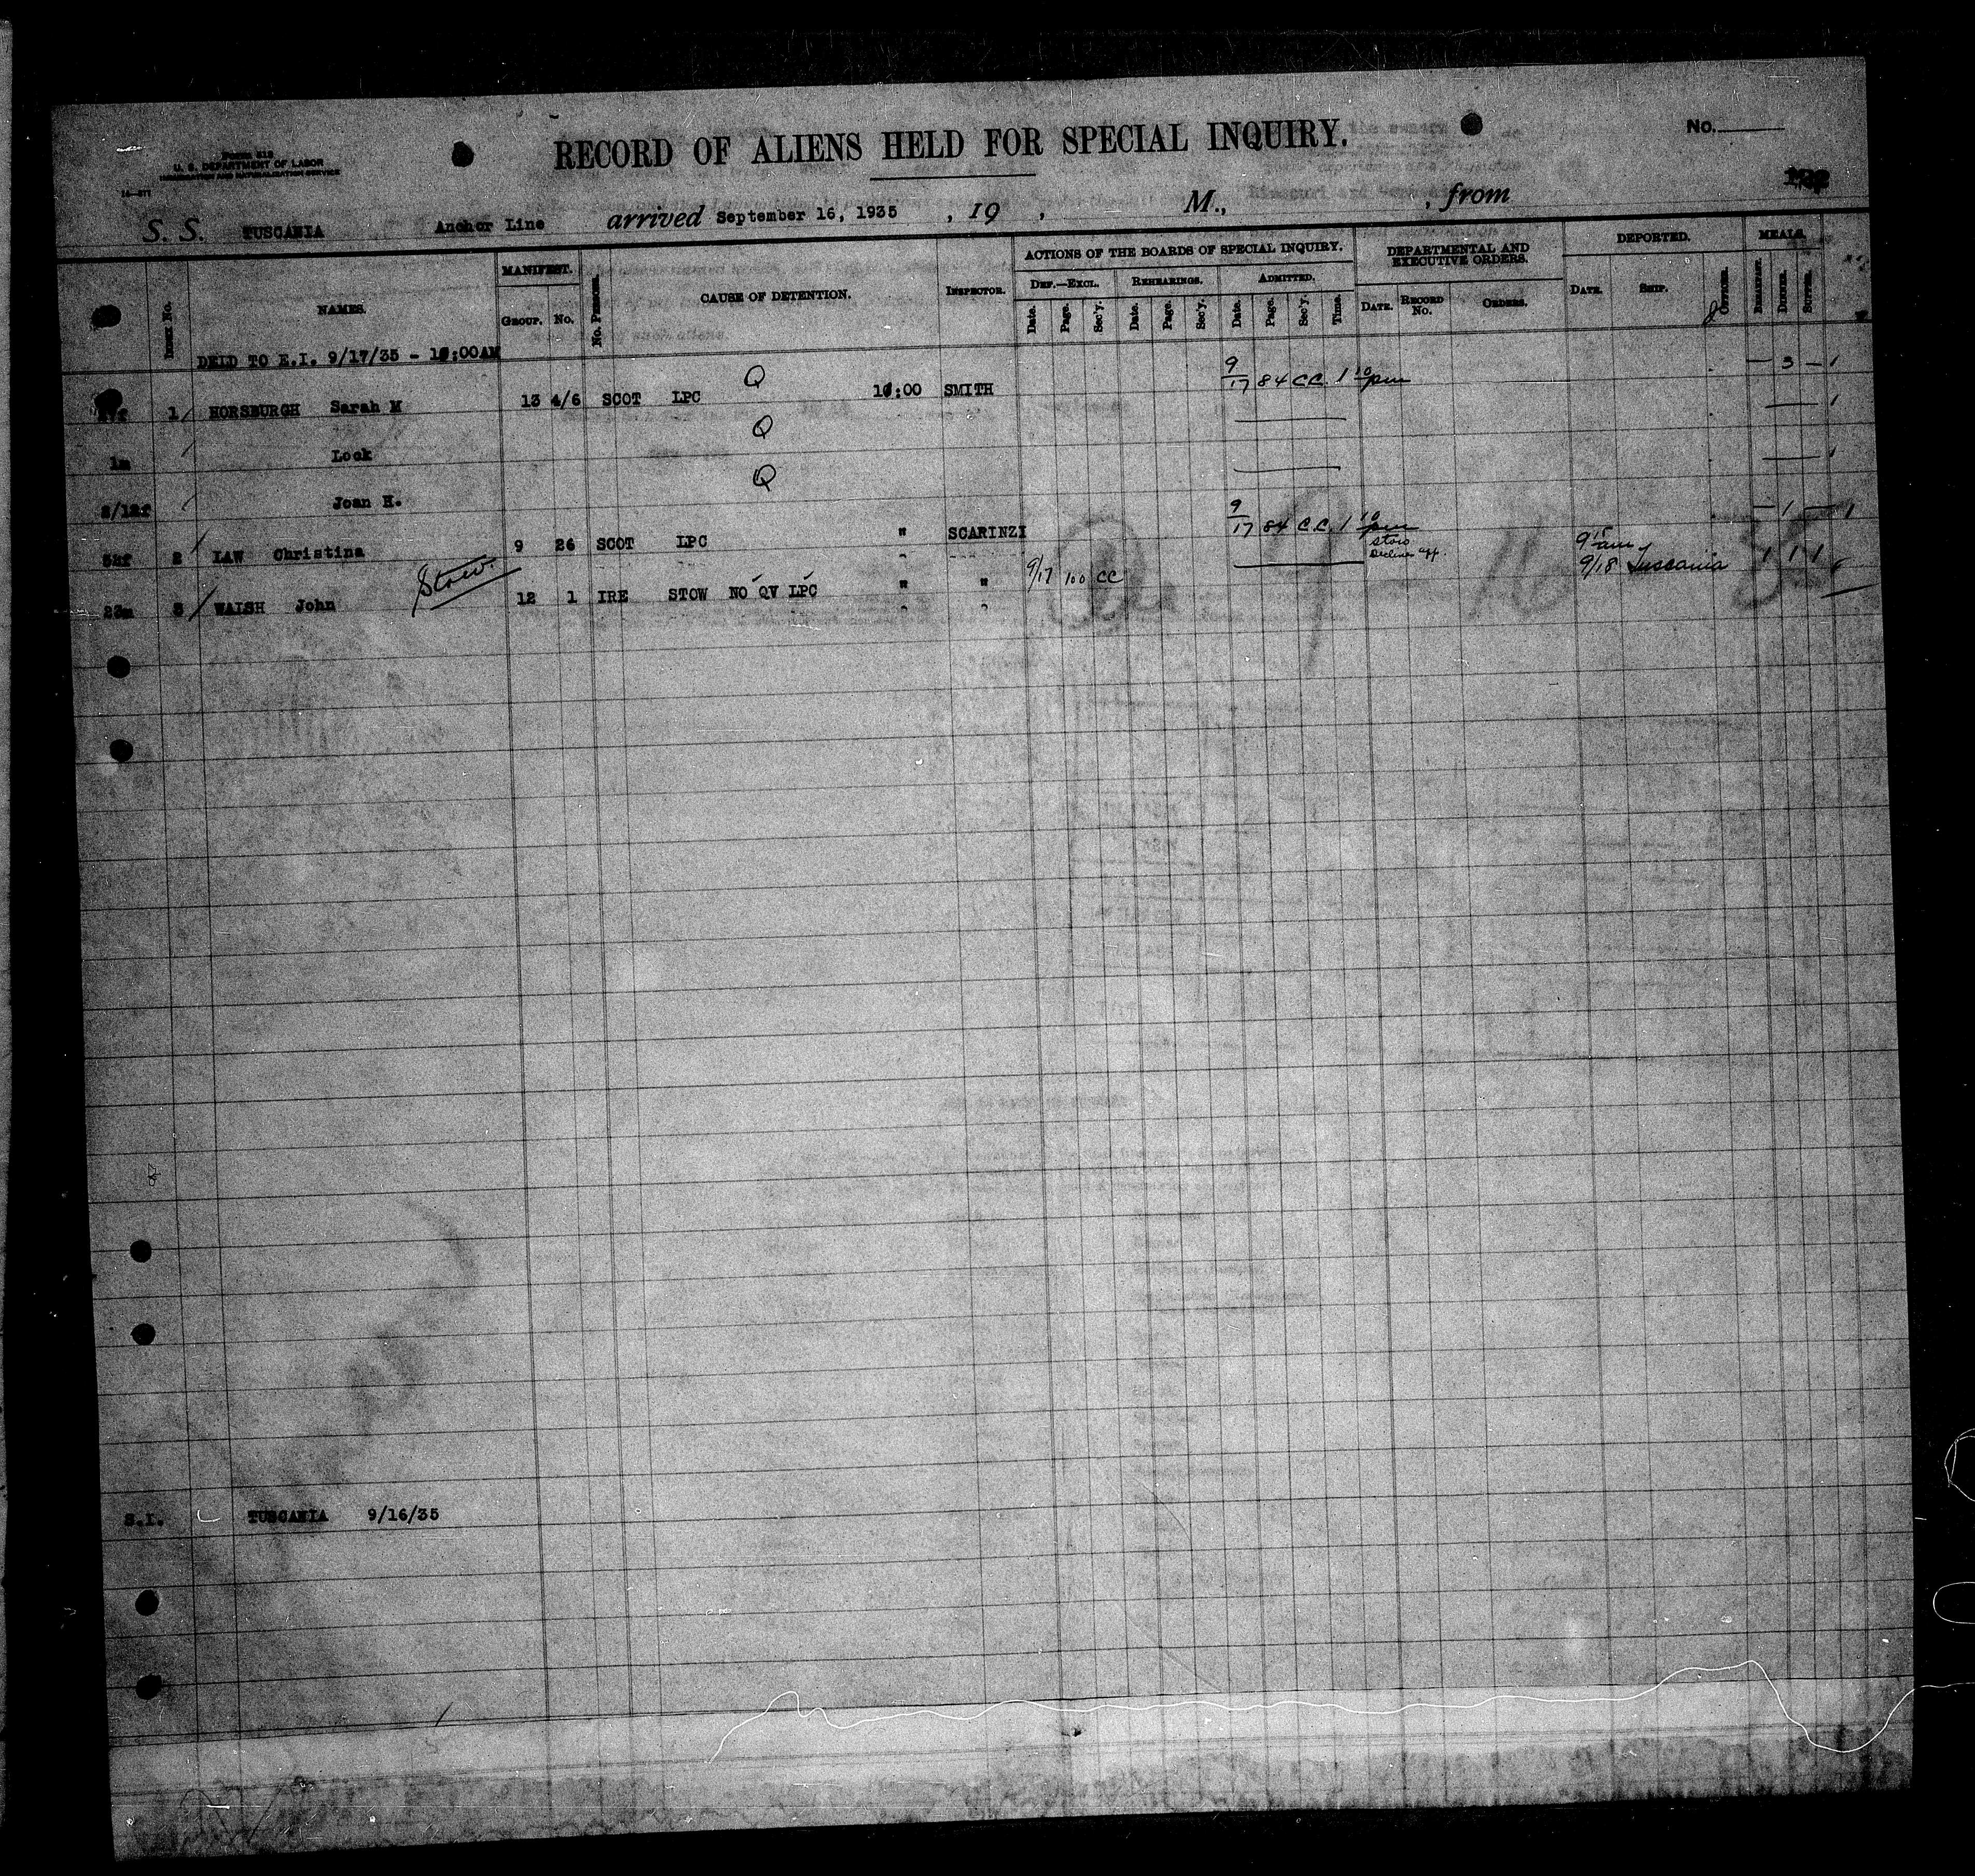 Form 519
U. S. DEPARTMENT OF LABOR
IMMIGRATION AND NATURALIZATION SERVICE
RECORD OF ALIENS HELD FOR SPECIAL INQUIRY.
No.
S. S. TUSCANIA Anchor Line arrived September 16, 1935 , 19 , M., , from
INDEX No. NAMES. MANIFEST. GROUP. No. No. PERSONS. CAUSE OF DETENTION. INSPECTOR. ACTIONS OF THE BOARDS OF SPECIAL INQUIRY. DEPARTMENTAL AND EXECUTIVE ORDERS. DEPORTED. MEALS.
DEF.—EXCL. REHEARINGS. ADMITTED.
Date. Page. Sec'y. Date. Page. Sec'y. Date. Page. Sec'y. Time. DATE. RECORD No. ORDERS. DATE. SHIP. OFFICER. BREAKFAST. DINNER. SUPPER.
DELD TO E.I. 9/17/35 - 10:00AM
1 HORSBURGH Sarah M 13 4/6 SCOT LPC Q 10:00 SMITH 9/17 84 CC. 1 10 pm — 3 — 1
1m Lock Q
8/12f Joan H. Q
52f 2 LAW Christina 9 26 SCOT LPC " SCARINZI 9/17 84 C.C. 1 10 pm — 1 — 1
23m 3 WALSH John Stow. 12 1 IRE STOW NO QV LPC " " 9/17 100 CC Stow Declines app. 9 15 am 9/18 Tuscania 1 1 1
S.I. TUSCANIA 9/16/35